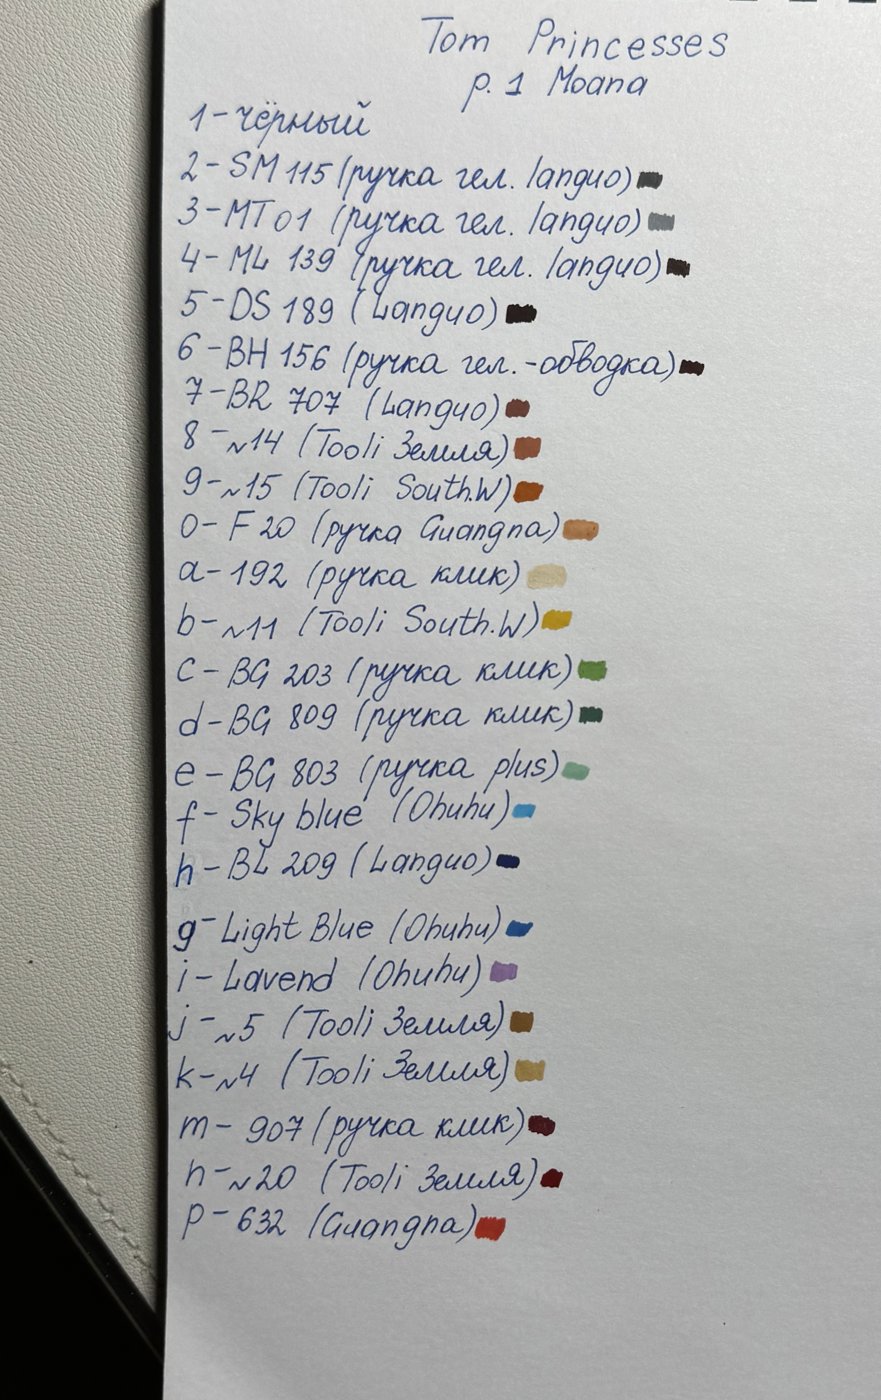 Tom Princesses
p. 1 Moana
1 - чёрный
2 - SM 115 (ручка гел. languo)
3 - MT 01 (ручка гел. languo)
4 - ML 139 (ручка гел. languo)
5 - DS 189 (Languo)
6 - BH 156 (ручка гел. - обводка)
7 - BR 707 (Languo)
8 - ~14 (Tooli Земля)
9 - ~15 (Tooli South.W)
0 - F 20 (ручка Guangna)
a - 192 (ручка клик)
b - ~11 (Tooli South.W)
c - BG 203 (ручка клик)
d - BG 809 (ручка клик)
e - BG 803 (ручка plus)
f - Sky blue (Ohuhu)
h - BL 209 (Languo)
g - Light Blue (Ohuhu)
i - Lavend (Ohuhu)
j - ~5 (Tooli Земля)
k - ~4 (Tooli Земля)
m - 907 (ручка клик)
n - ~20 (Tooli Земля)
p - 632 (Guangna)